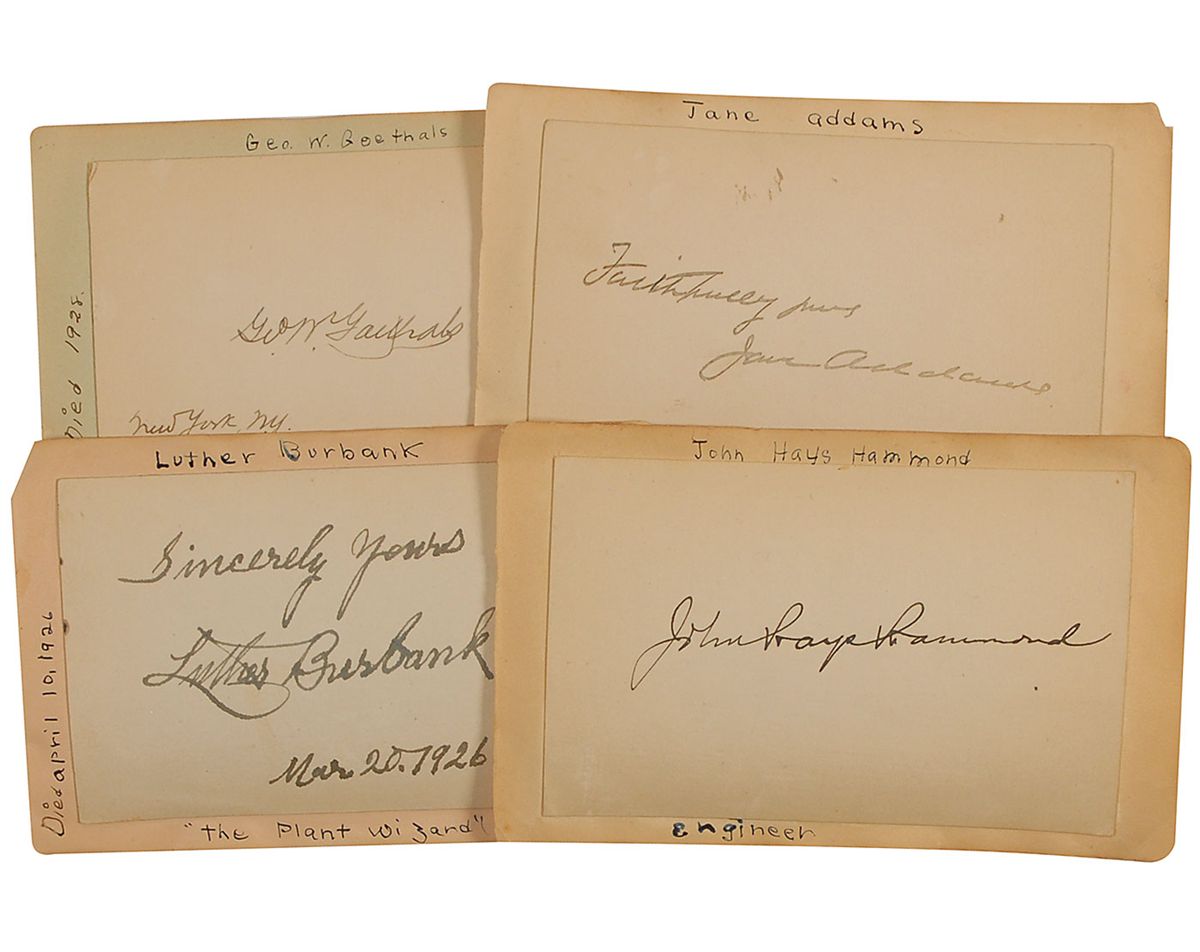 Geo. W. Goethals
Died 1928.
Geo W Goethals
New York, N.Y.
Jane addams
Faithfully yours
Jane Addams
Luther Burbank
Died april 10, 1926
Sincerely Yours
Luther Burbank
Mar 20. 1926
"the Plant wizard"
John Hays Hammond
John Hays Hammond
engineer